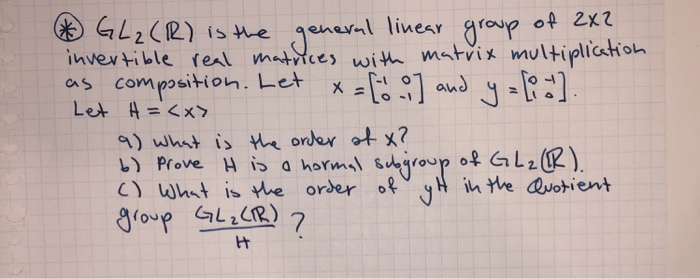 ⊛ GL₂(R) is the general linear group of 2x2
invertible real matrices with matrix multiplication
as composition. Let x = [-1 0; 0 -1] and y = [0 -1; 1 0].
Let H = <x>
a) what is the order of x?
b) Prove H is a normal subgroup of GL₂(R).
c) What is the order of yH in the Quotient
group GL₂(R)/H ?